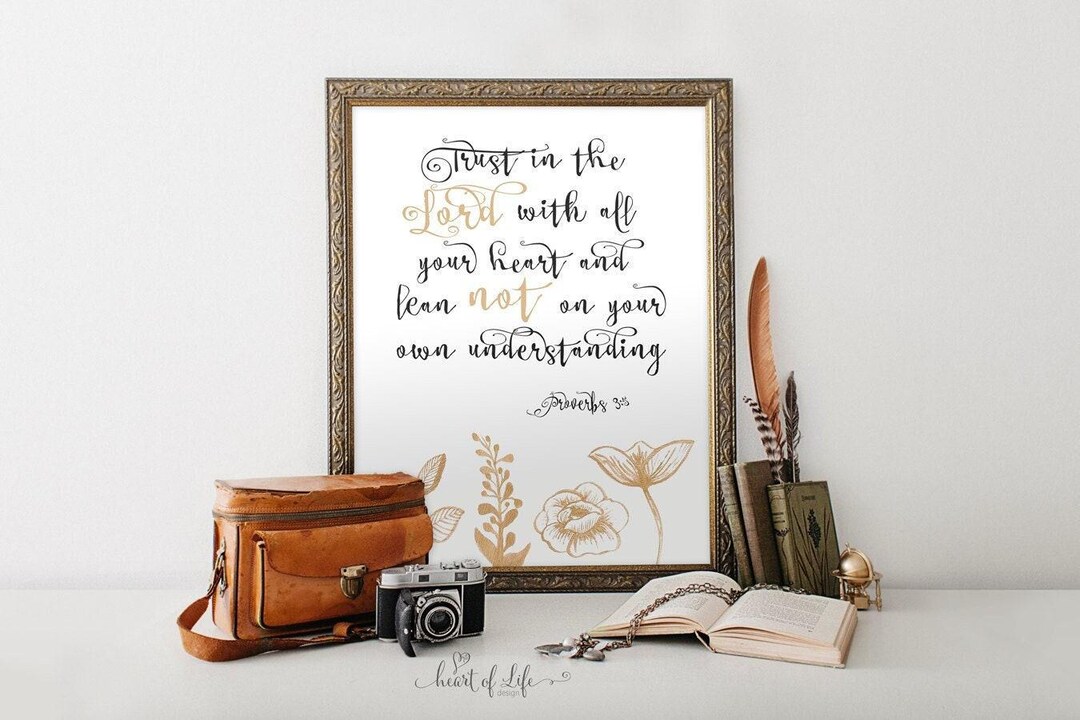 Trust in the
Lord with all
your heart and
lean not on your
own understanding
Proverbs 3:5
heart of Life
design